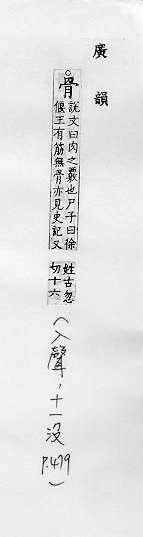 廣韻
骨
說文曰肉之覈也尸子曰徐
偃王有筋無骨亦見史記又
姓古忽
切十六
(入聲,十一沒
P.479)